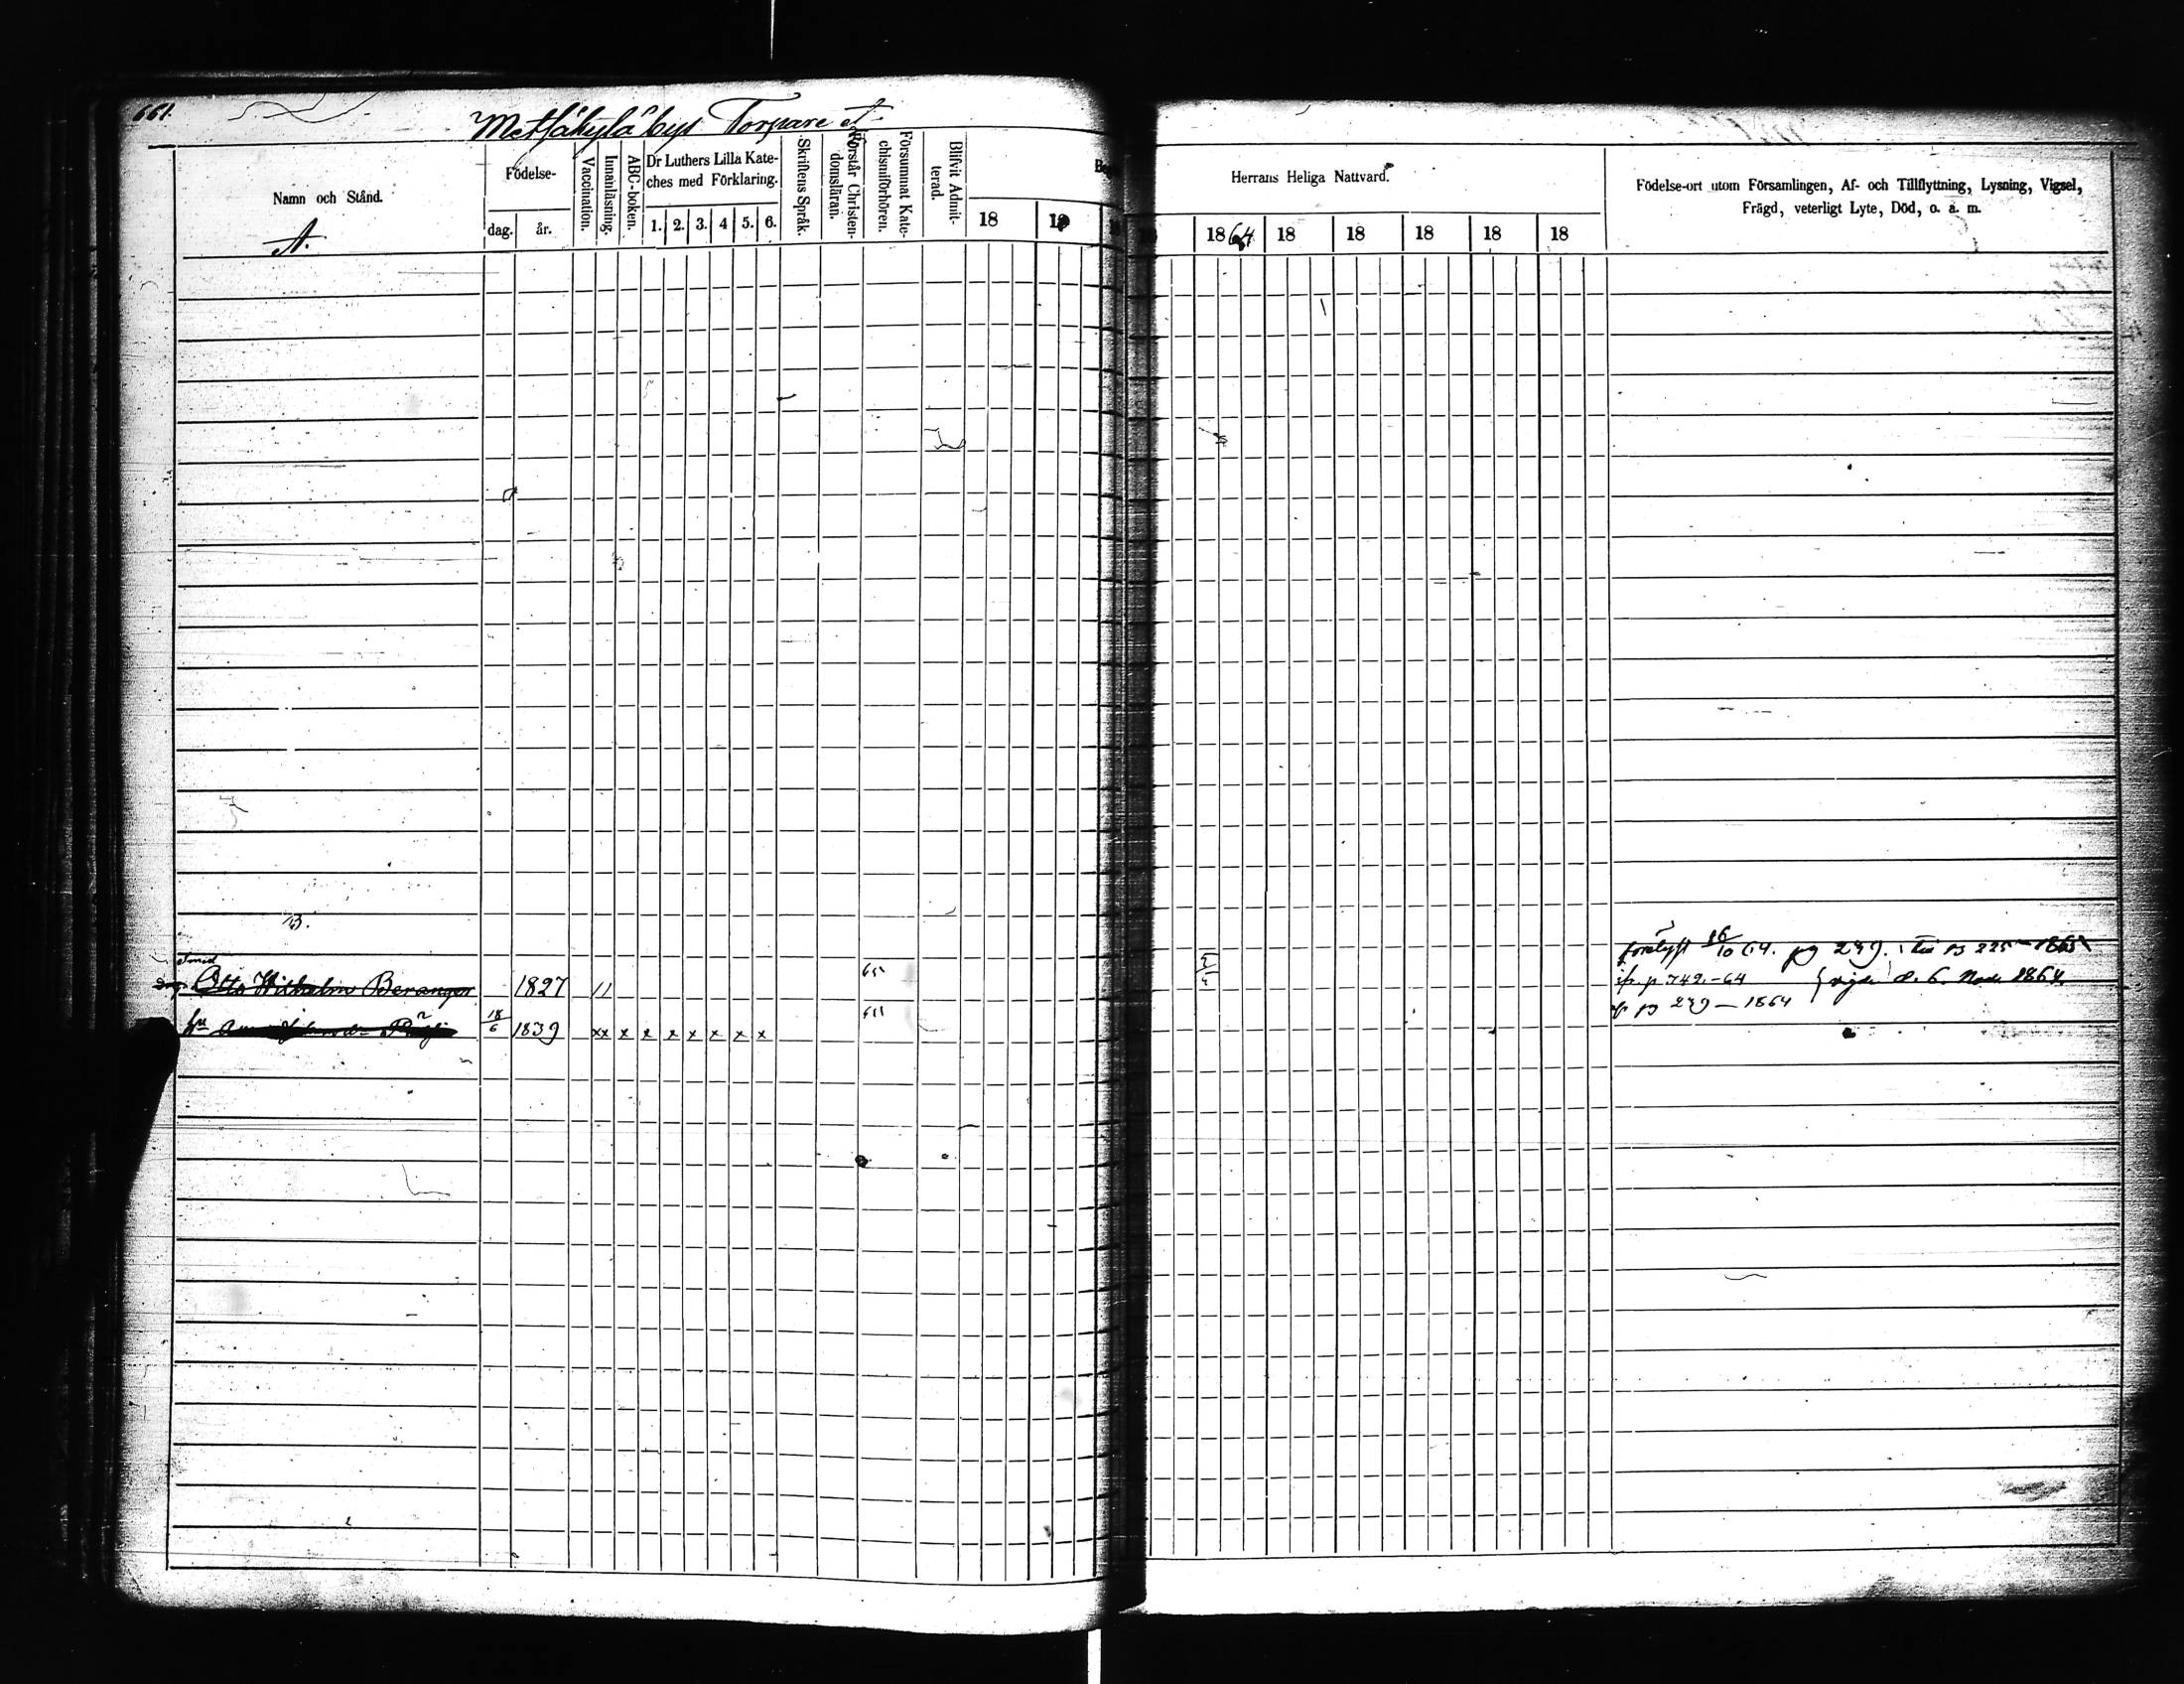 661.
Metsäkylä bys Torpare
Namn och Stånd.
Födelse-
dag. år.
Vaccination.
Innanläsning.
ABC-boken.
Dr Luthers Lilla Kate-
ches med Förklaring.
1. 2. 3. 4 5. 6.
Skriftens Språk.
Förstår Christen-
domsläran.
Försummat Kate-
chismiförhören.
Blifvit Admit-
terad.
18 18
Herrans Heliga Nattvard.
1864 18 18 18 18 18
Födelse-ort utom Församlingen, Af- och Tillflyttning, Lysning, Vigsel,
Frägd, veterligt Lyte, Död, o. a. m.
A.
B.
Smed
Otto Wilhelm Beranger 1827 11
hu 18/6 1839 xx x x x x x x x
16/10 64. pg 239. till pg 225 - 1865
p. 742.-64 d. 6. Nov. 1864.
pg 239 - 1864